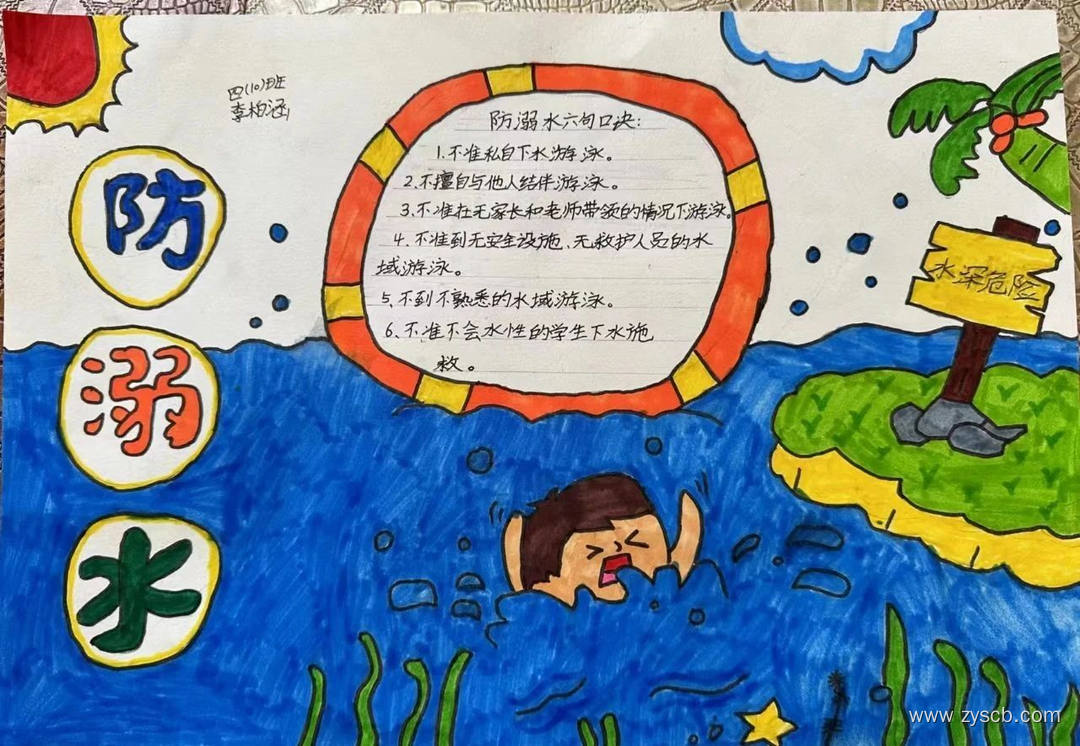 四(10)班
李柏涵
防
溺
水
防溺水六句口诀:
1.不准私自下水游泳。
2.不擅自与他人结伴游泳。
3.不准在无家长和老师带领的情况下游泳。
4.不准到无安全设施、无救护人员的水
域游泳。
5、不到不熟悉的水域游泳。
6、不准不会水性的学生下水施
救。
水深危险
www.zyscb.com